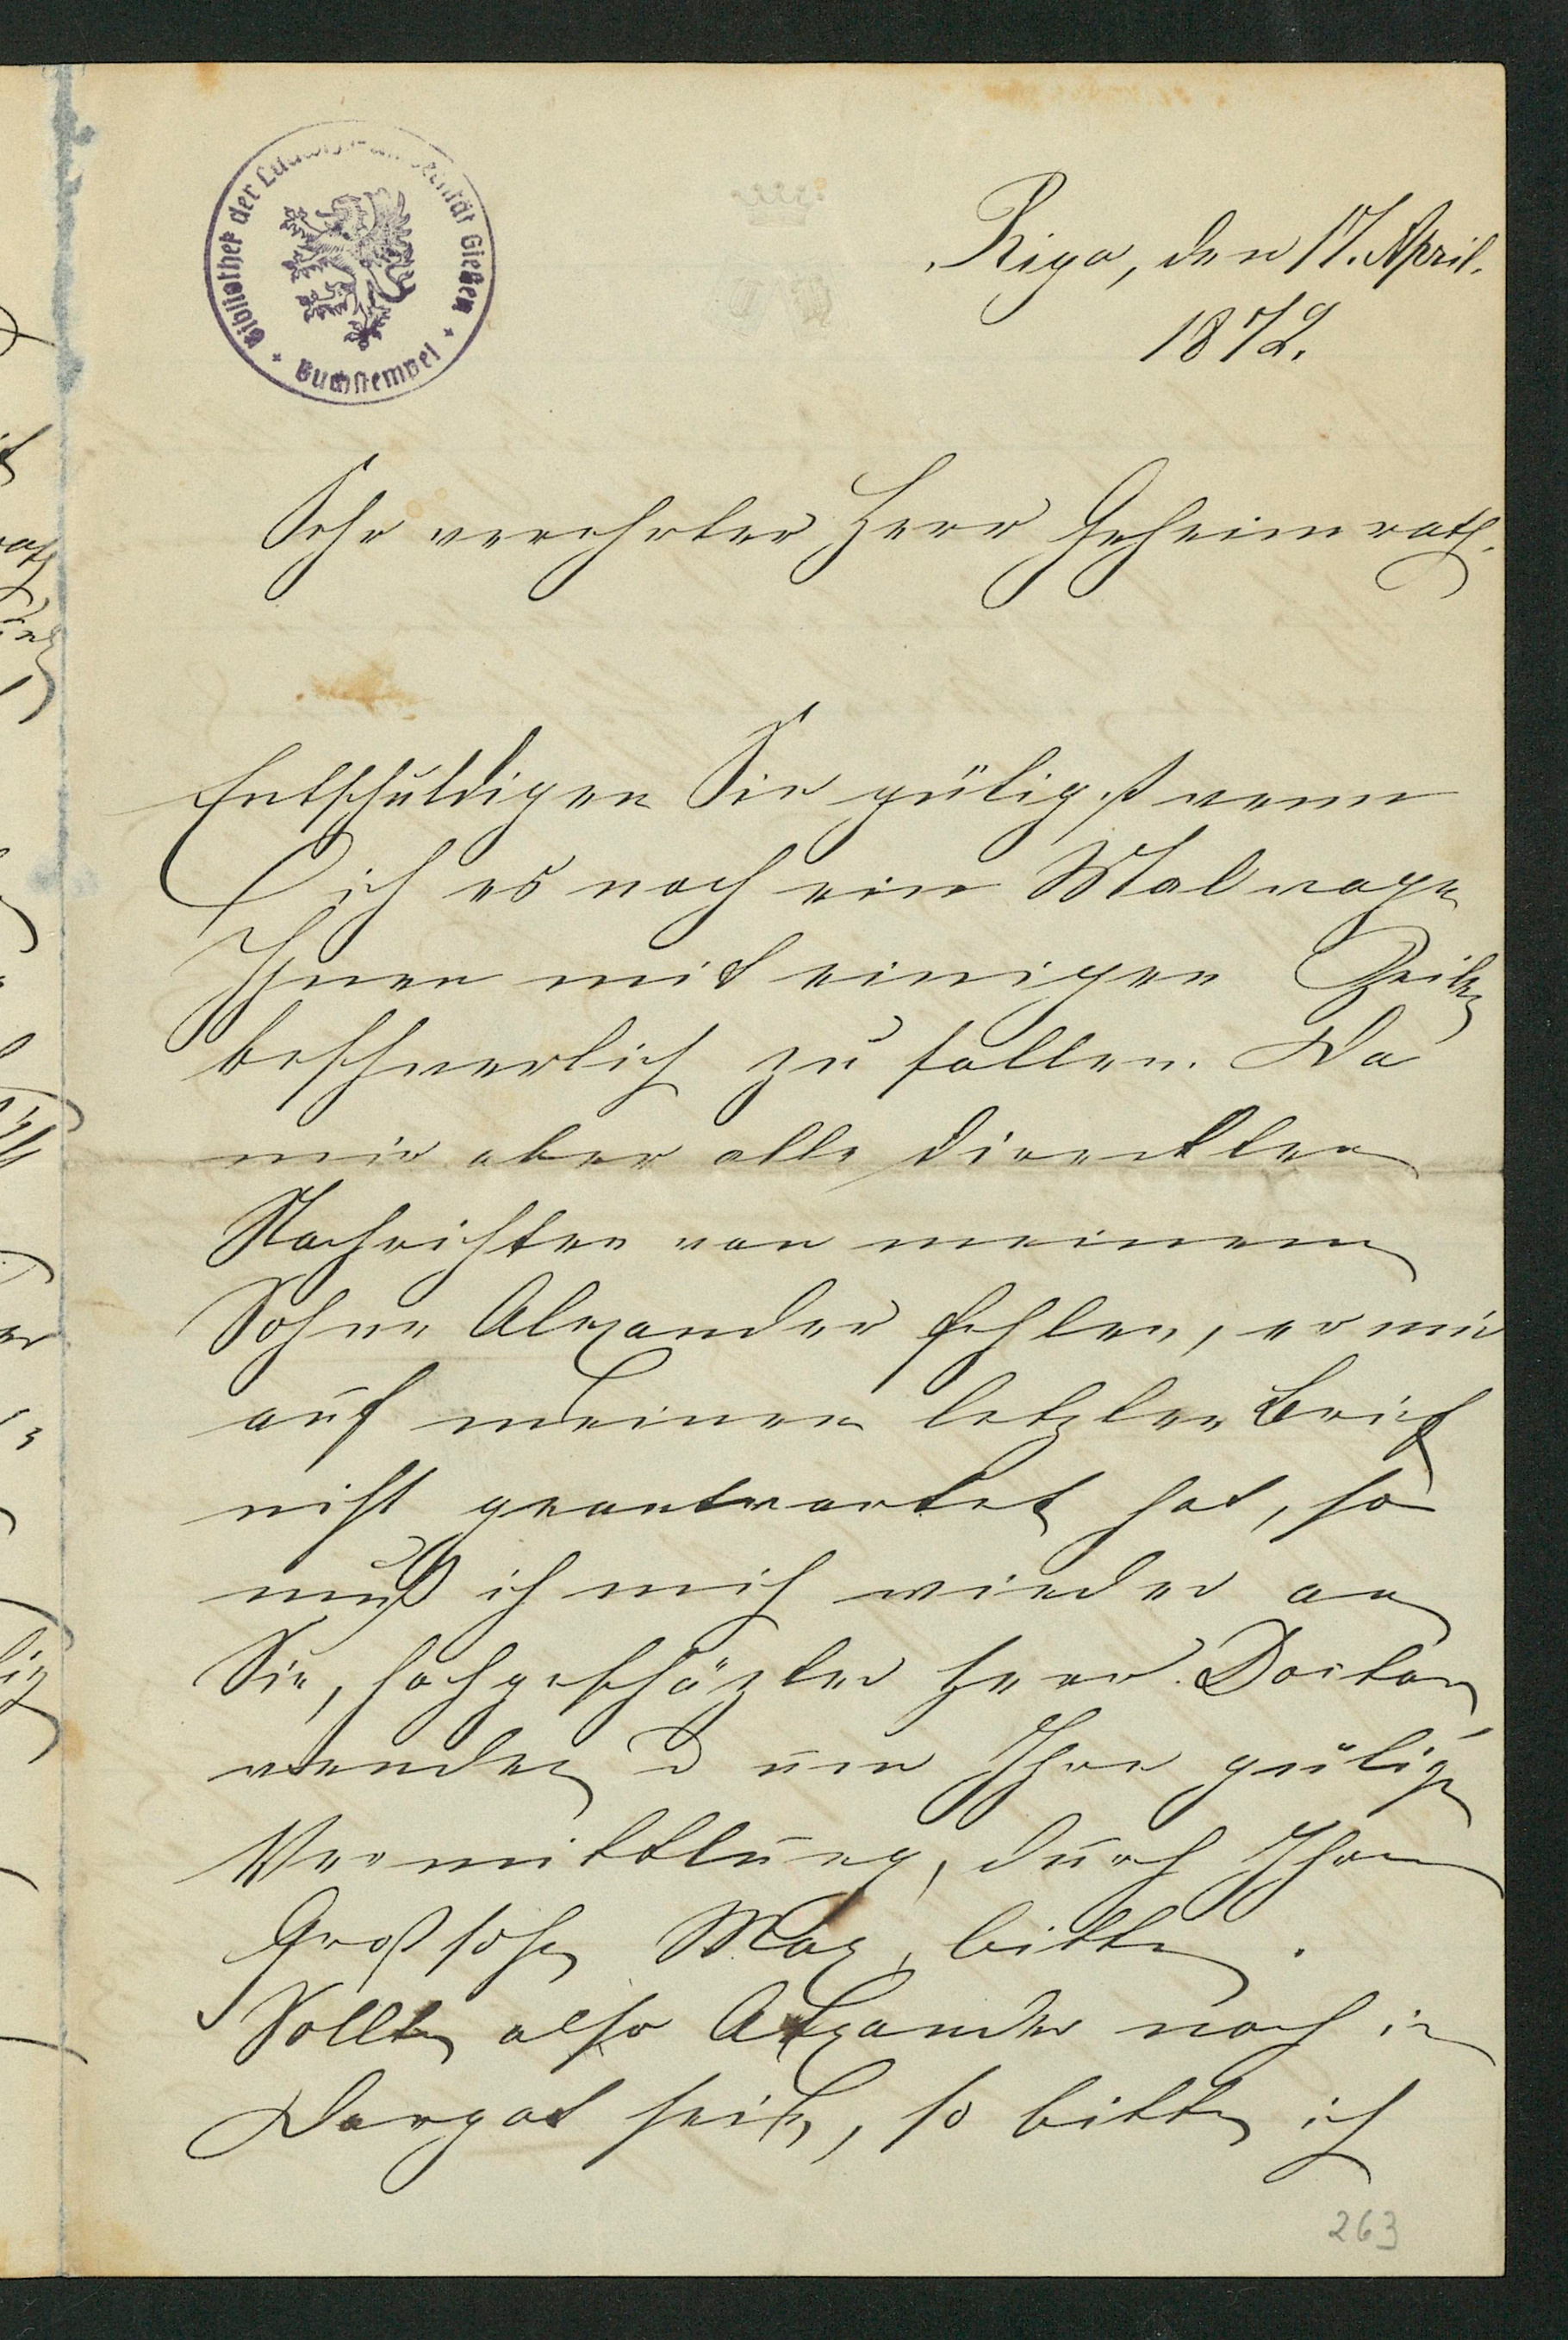 Bibliothek der Ludwigs-Universität Gießen
Buchstempel
Riga, den 17. April.
1872.
Sehr verehrter Herr Geheimrath.
Entschuldigen Sie gütigst wenn
ich es noch ein Mal wage
Ihnen mit einigen Zeilen
beschwerlich zu fallen. Da
mir aber alle directten
Nachrichten von meinem
Sohne Alexander fehlen, er mir
auf meinen letzten Brief
nicht geantwortet hat, so
muß ich mich wieder an
Sie, hochgeschäzter Herr Doctor
wenden u um Ihre gütige
Vermittlung, durch Ihren
Großsohn Max, bitten.
Sollte also Alexander noch in
Dorpat sein, so bitte ich
263